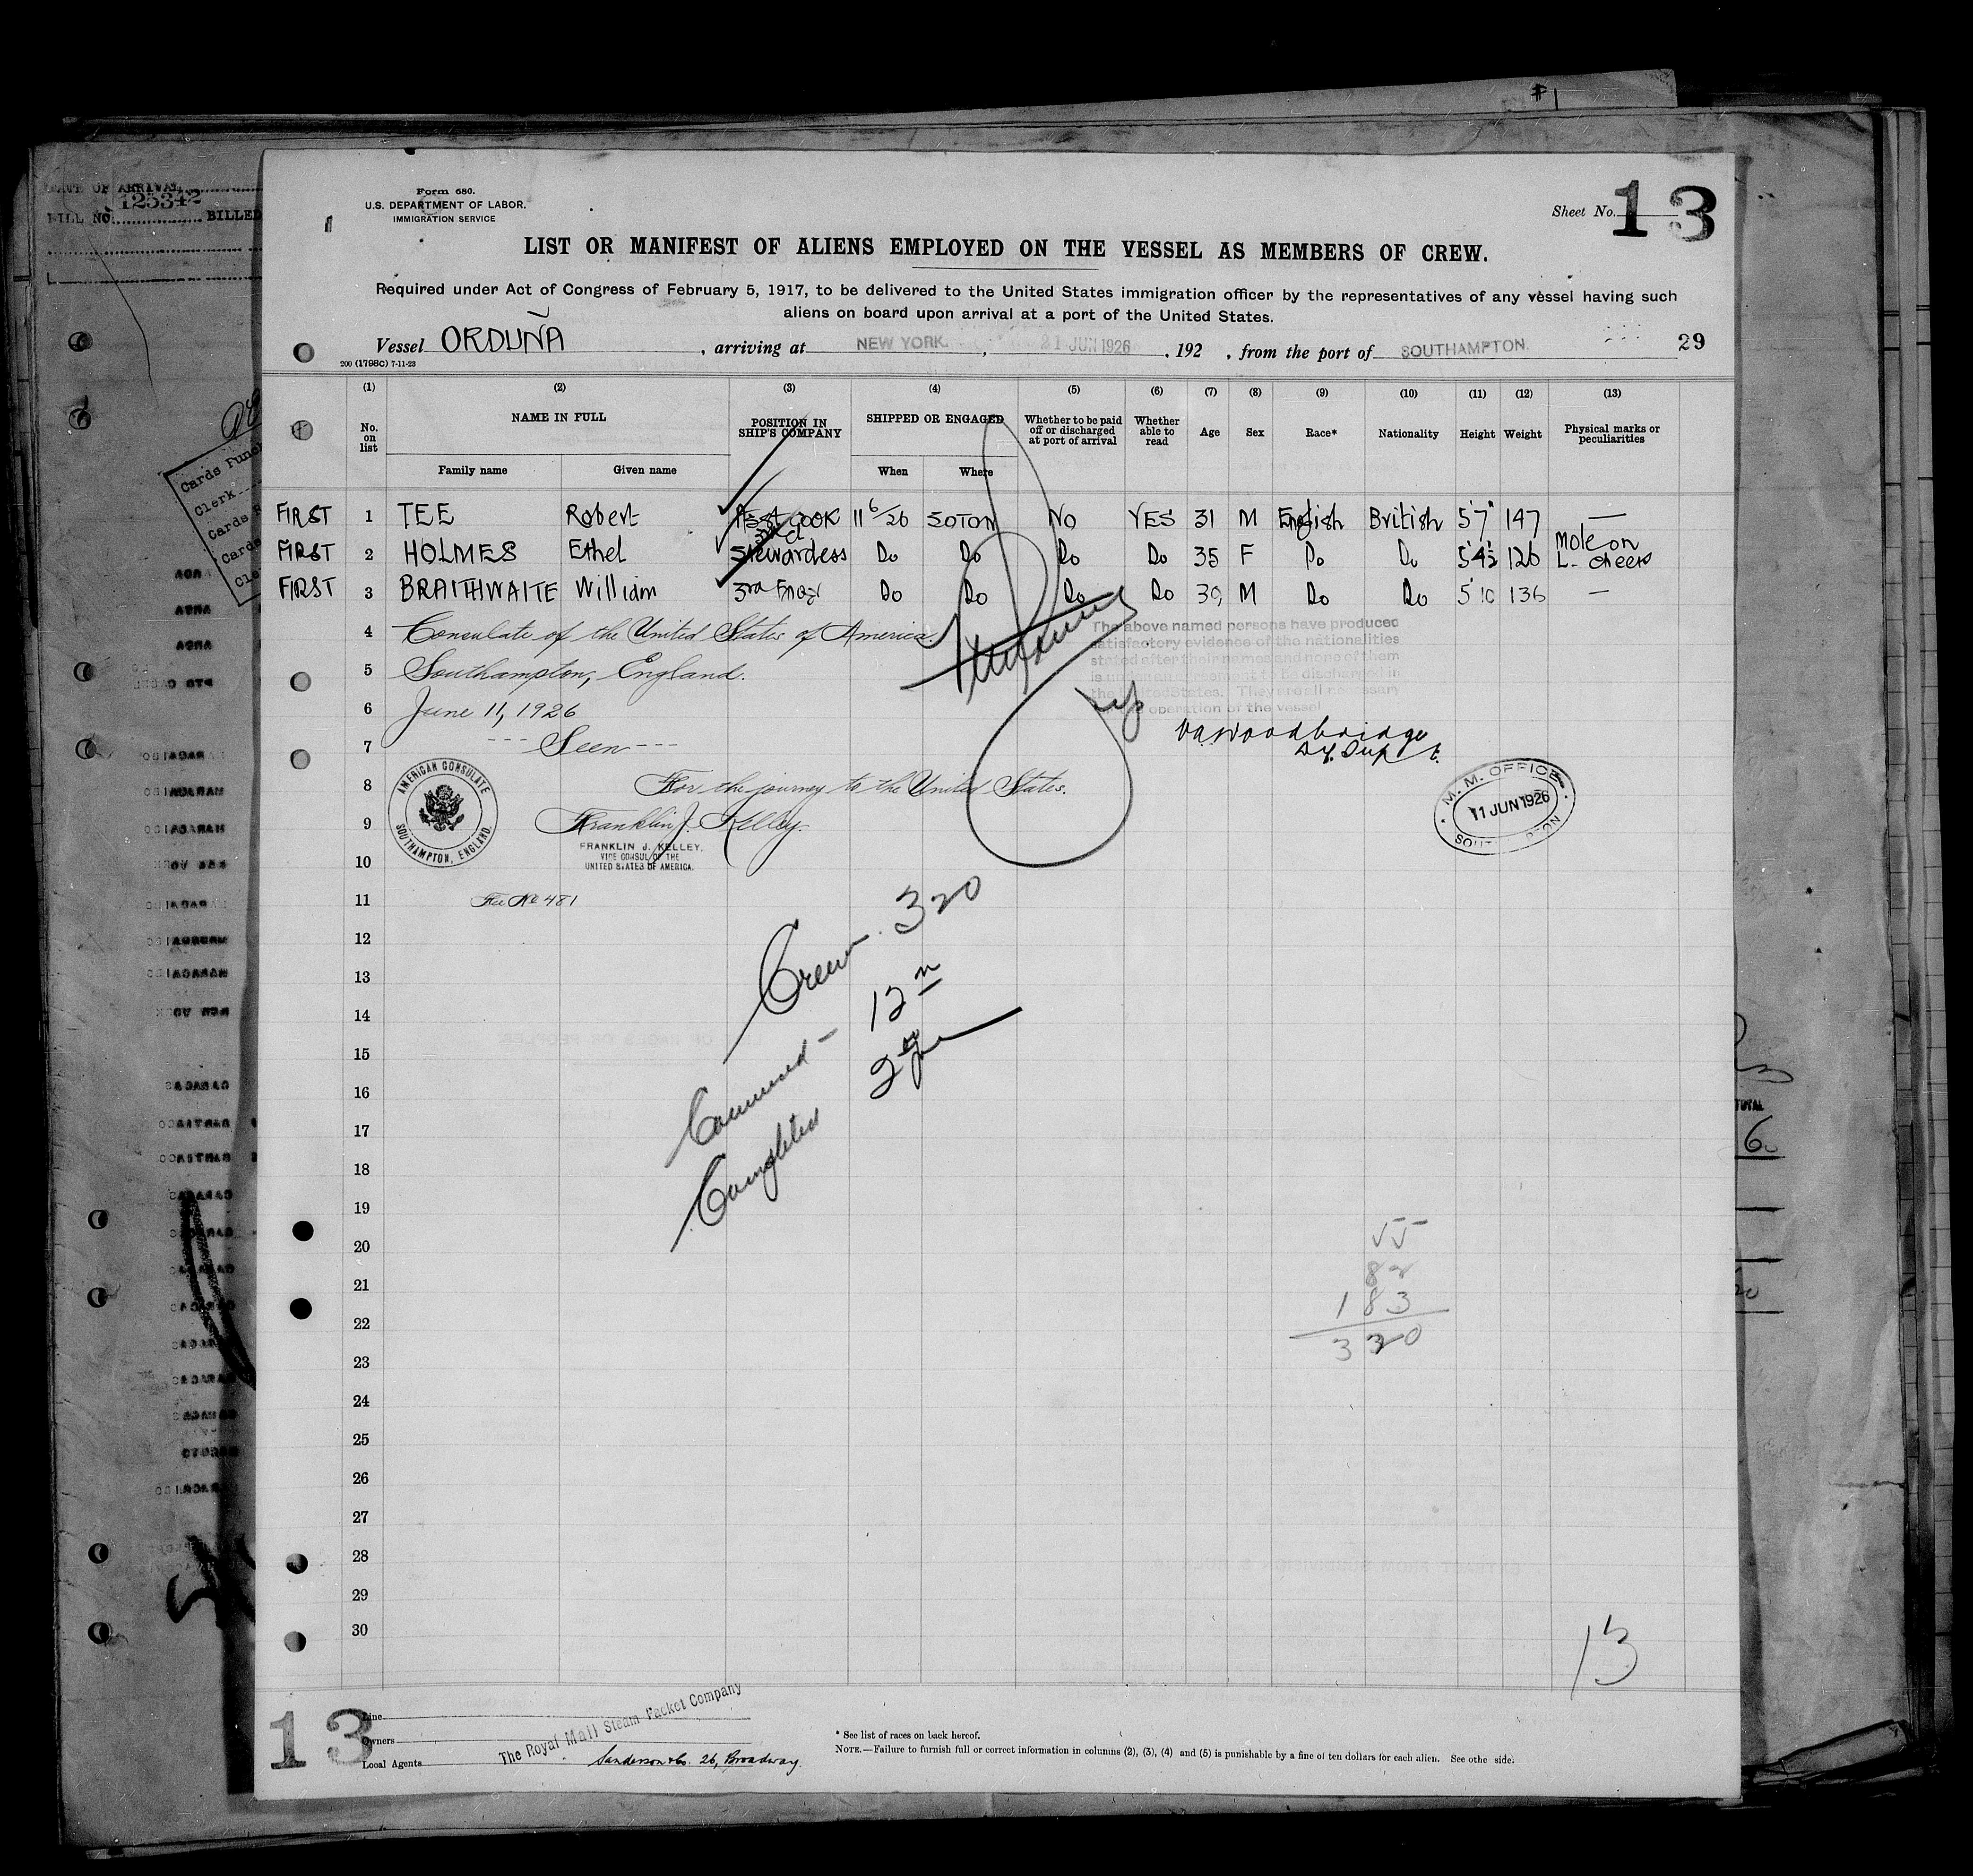 #1
DATE OF ARRIVAL
BILL NO. 125342 BILLED
Form 680.
U.S. DEPARTMENT OF LABOR.
IMMIGRATION SERVICE
Sheet No. 13
LIST OR MANIFEST OF ALIENS EMPLOYED ON THE VESSEL AS MEMBERS OF CREW.
Required under Act of Congress of February 5, 1917, to be delivered to the United States immigration officer by the representatives of any vessel having such
aliens on board upon arrival at a port of the United States.
Vessel ORDUÑA, arriving at NEW YORK, 21 JUN 1926, 192 , from the port of SOUTHAMPTON. 29
200 (1798C) 7-11-23
(1) (2) (3) (4) (5) (6) (7) (8) (9) (10) (11) (12) (13)
No. on list NAME IN FULL POSITION IN SHIP'S COMPANY SHIPPED OR ENGAGED Whether to be paid off or discharged at port of arrival Whether able to read Age Sex Race* Nationality Height Weight Physical marks or peculiarities
Family name Given name When Where
FIRST 1 TEE Robert Asst Cook 11 6/26 SOTON NO YES 31 M English British 5'7" 147 —
FIRST 2 HOLMES Ethel Stewardess Do Do Do Do 35 F Do Do 5'4½ 126 Mole on L. cheek
FIRST 3 BRAITHWAITE William 3rd Engr Do Do Do Do 39 M Do Do 5'10 136 —
4 Consulate of the United States of America.
The above named persons have produced
satisfactory evidence of the nationalities
stated after their names and none of them
is under an agreement to be discharged in
the United States. They are all necessary
operation of the vessel
5 Southampton, England.
6 June 11, 1926
7 --- Seen ---
8 For the journey to the United States.
9 Franklin J. Kelley.
FRANKLIN J. KELLEY,
VICE CONSUL OF THE
UNITED STATES OF AMERICA.
AMERICAN CONSULATE
SOUTHAMPTON, ENGLAND.
M. M. OFFICE
11 JUN 1926
10
11 Fee No 481
12
13
14
15
16
17
18
19
20
21
22
23
24
25
26
27
28
29
30
Crew 320
12
Completed 2
55
82
183
320
13
13
Line
Owners
The Royal Mail Steam Packet Company
Local Agents Sanderson & Co. 26, Broadway.
* See list of races on back hereof.
NOTE.—Failure to furnish full or correct information in columns (2), (3), (4) and (5) is punishable by a fine of ten dollars for each alien. See othe side.
TOTAL